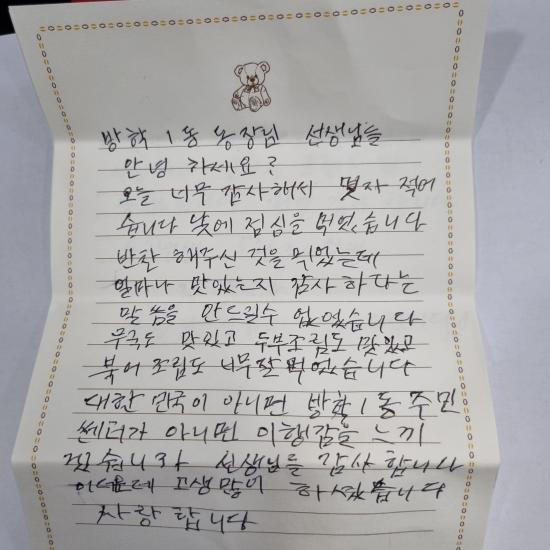 방학 1동 동장님 선생님들
안녕 하세요?
오늘 너무 감사해서 몇자 적어
습니다 낮에 점심을 먹었습니다
반찬 해주신 것을 먹었는데
얼마나 맛있는지 감사 하다는
말씀을 안드릴수 없었습니다
무국도 맛있고 두부조림도 맛있고
북어 조림도 너무잘 먹었습니다
대한 민국이 아니면 방학1동 주민
쎈터가 아니면 이행감을 느끼
선생님들 감사 합니다
고생많이 하셨습니다
사랑 합니다